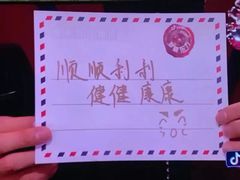 顺顺利利
健健康康